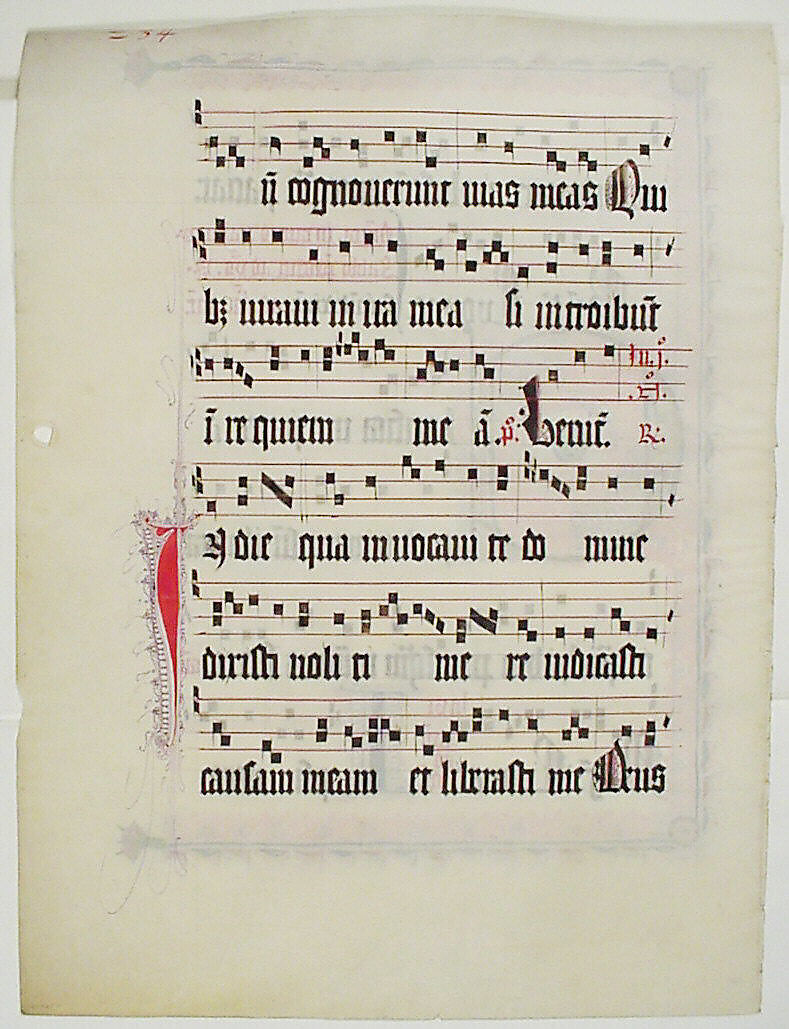 234
n̄ cognouerunt uias meas Qui
bꝫ iuraui in ira mea si introibūt
ī re quiem me ā. p̊. Venit̄. R̄.
N die qua inuocaui te do mine
dixisti noli ti me re iudicasti
causam meam et liberasti me Deus